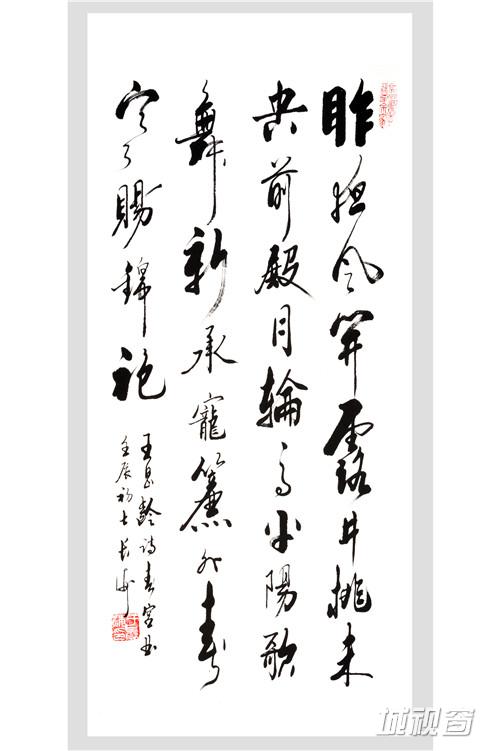 昨夜风開露井桃未
央前殿月輪高平陽歌
舞新承寵簾外春
寒賜錦袍
王昌齡詩春宫曲
壬辰初七长海
城视窗